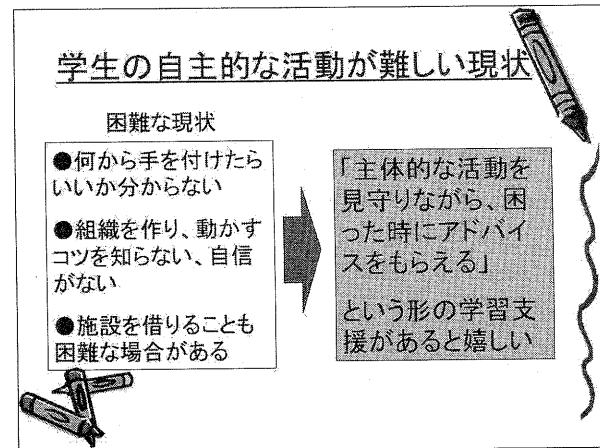 学生の自主的な活動が難しい現状
困難な現状
●何から手を付けたら
いいか分からない
●組織を作り、動かす
コツを知らない、自信
がない
●施設を借りることも
困難な場合がある
「主体的な活動を
見守りながら、困
った時にアドバイ
スをもらえる」
という形の学習支
援があると嬉しい